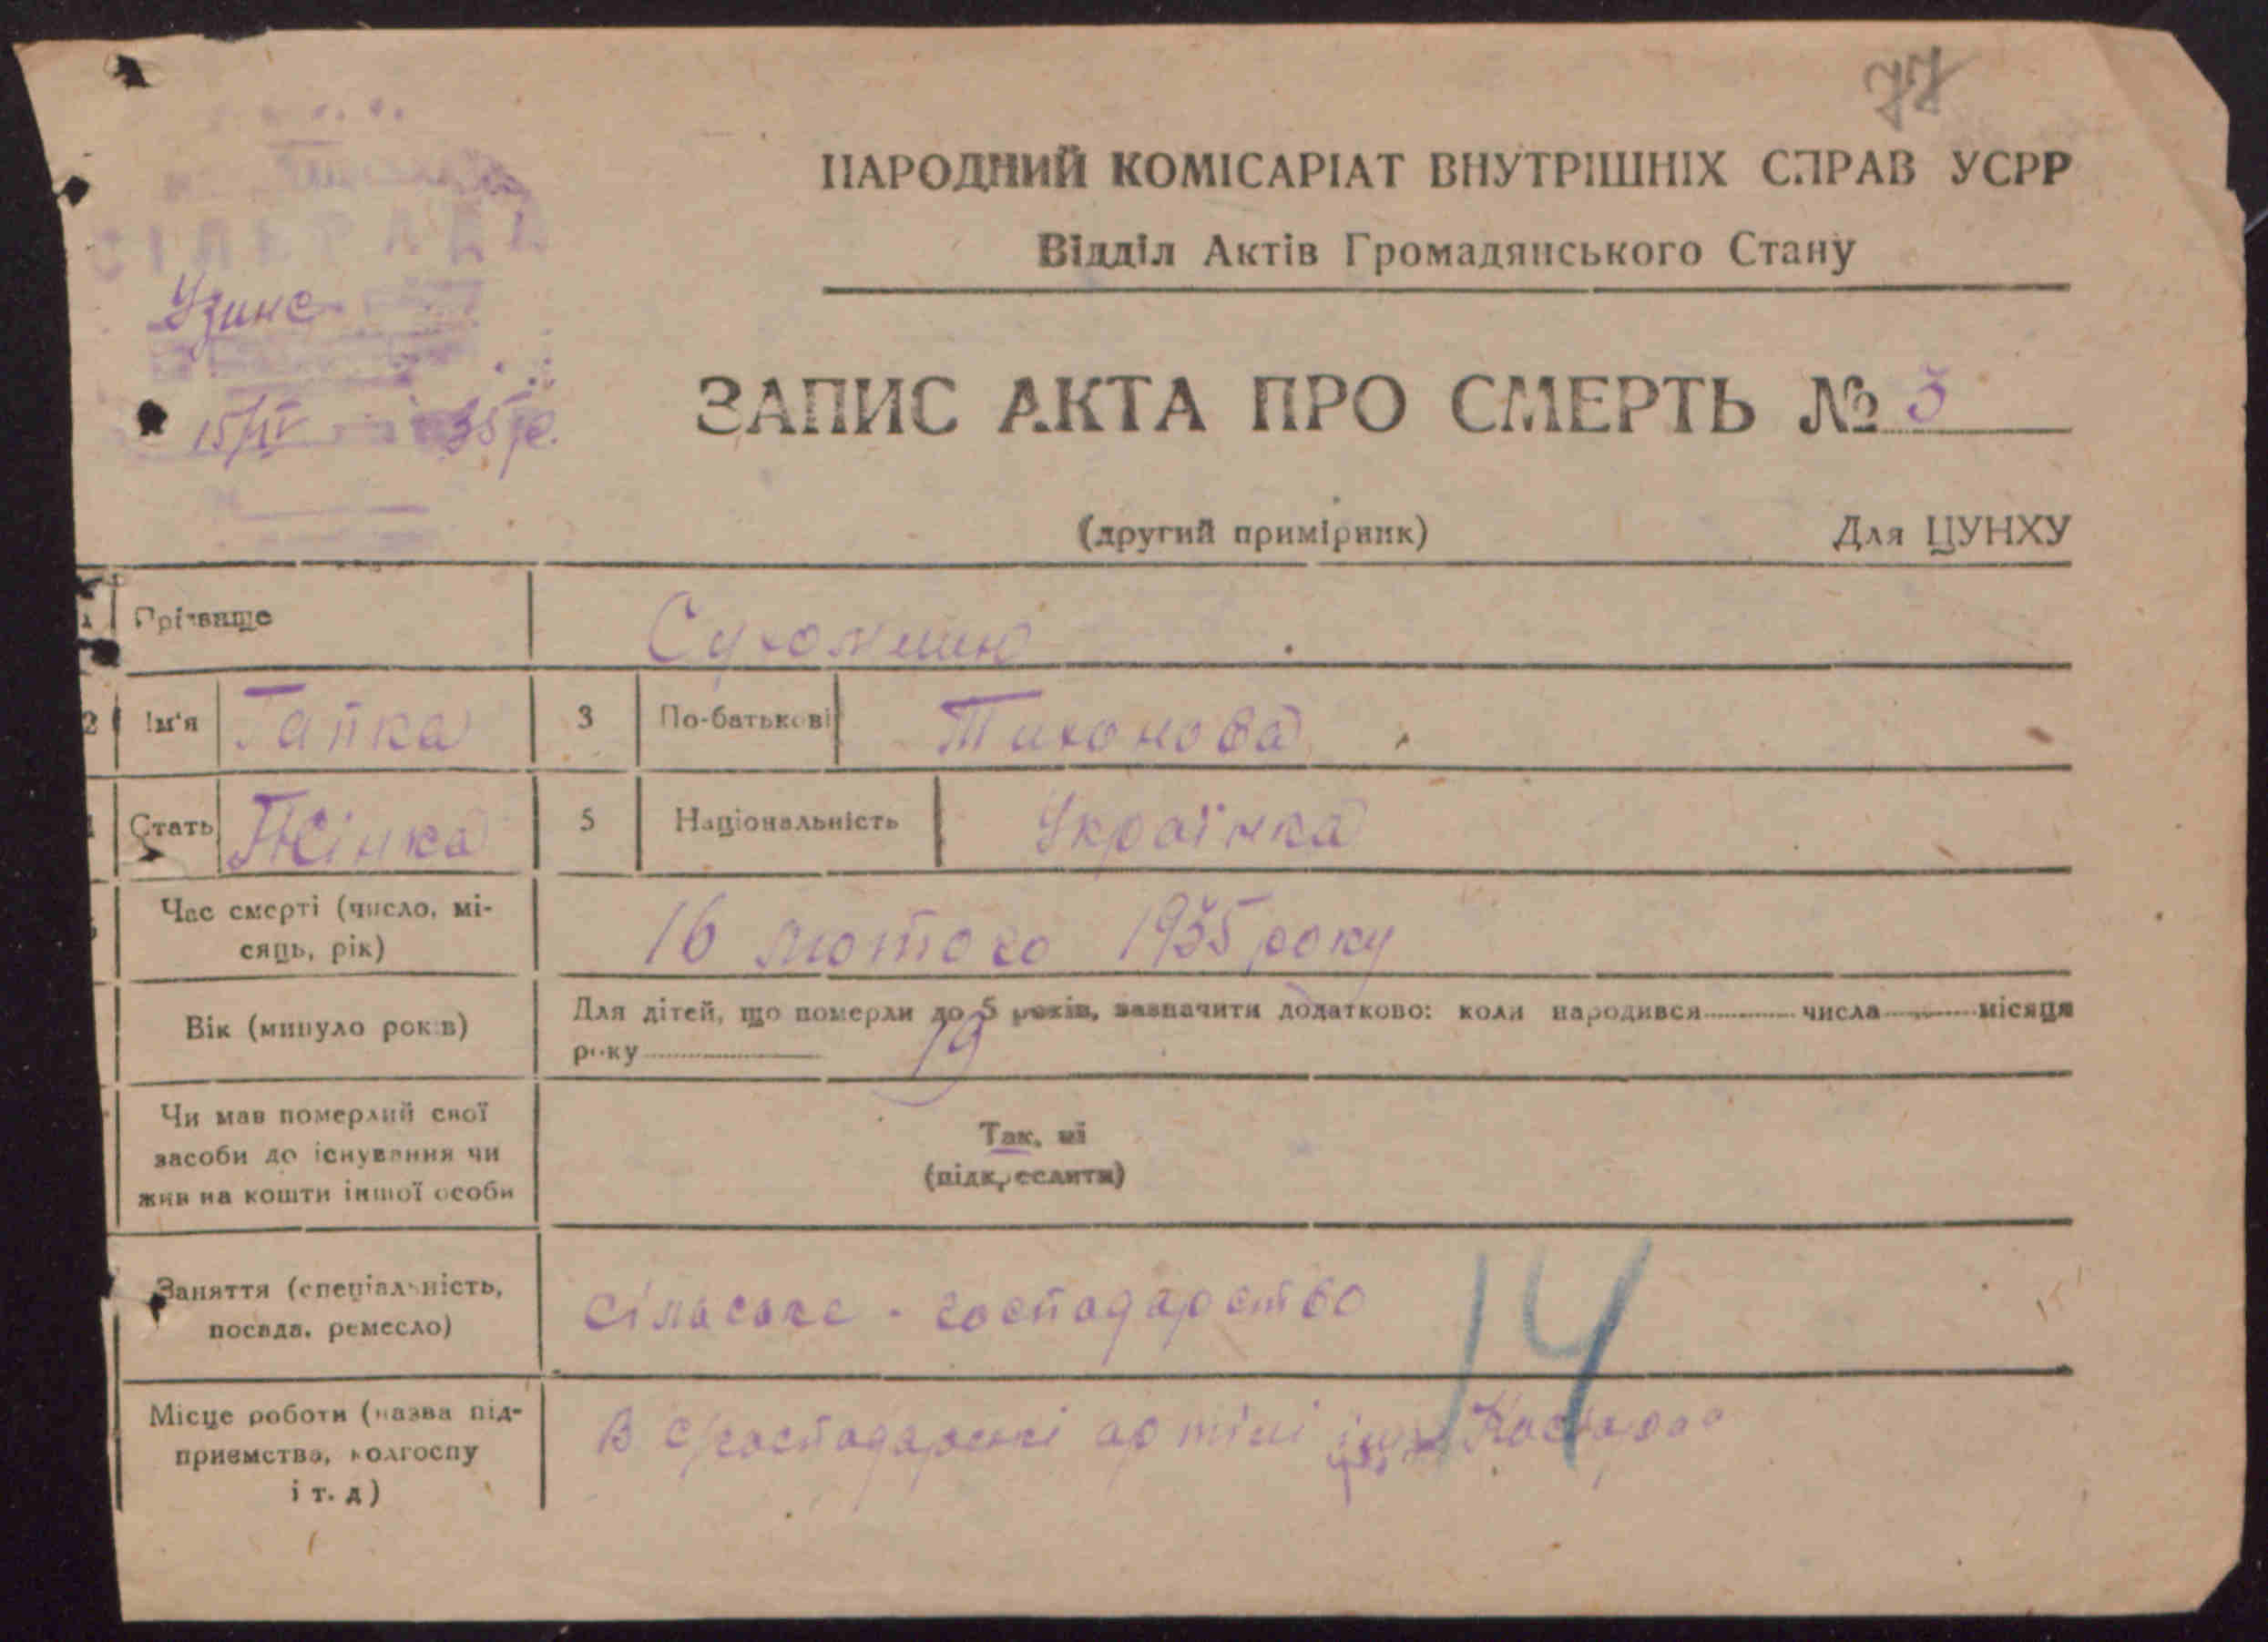 77
НАРОДНИЙ КОМІСАРІАТ ВНУТРІШНІХ СПРАВ УСРР
Відділ Актів Громадянського Стану
СІЛЬРАДА
Узинс
15/IV 35 р.
ЗАПИС АКТА ПРО СМЕРТЬ № 3
(другий примірник) Для ЦУНХУ
1 Прізвище
2 Ім'я Гапка 3 По-батькові Тихонова
Стать Жінка 5 Національність Українка
Час смерті (число, мі-
сяць, рік) 16 лютого 1935 року
Вік (минуло років) 79 Для дітей, що померли до 5 років, зазначити додатково: коли народився числа місяця
року
Чи мав померлий свої
засоби до існування чи
жив на кошти іншої особи
Так, ні
(підкреслити)
Заняття (спеціальність,
посада, ремесло) сільське - господарство
14
Місце роботи (назва під-
приємства, колгоспу
і т. д)
В с/господарські артілі